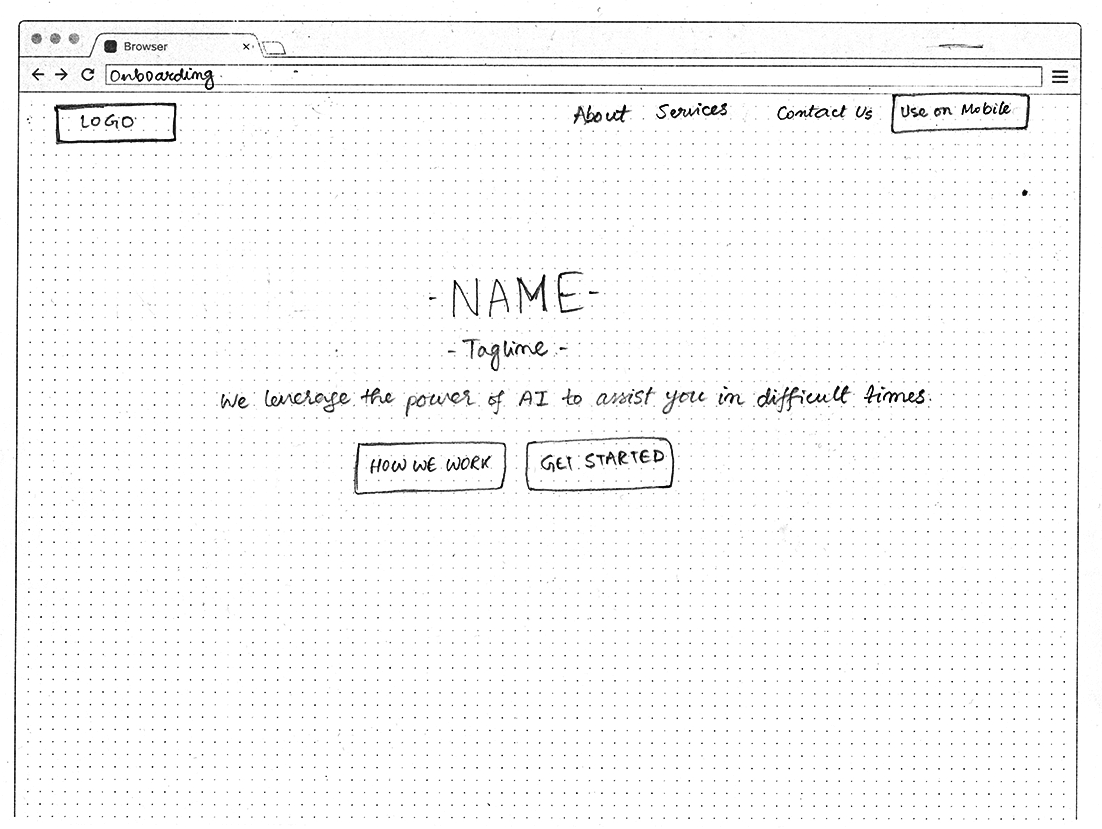 Browser
Onboarding
LOGO About Services Contact Us Use on Mobile
- NAME -
- Tagline -
We leverage the power of AI to assist you in difficult times.
HOW WE WORK GET STARTED